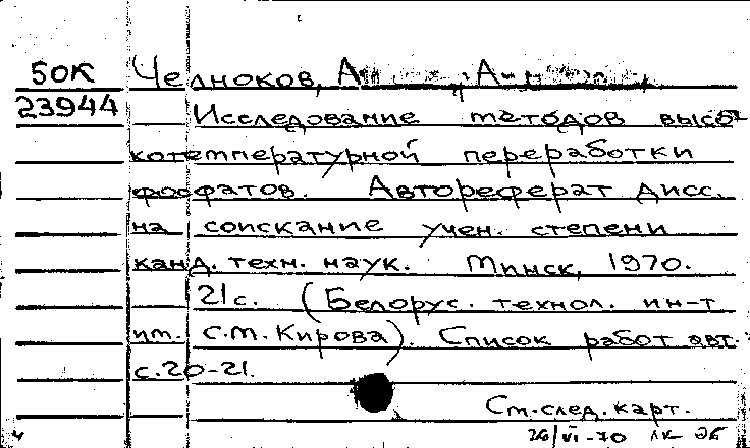 50К Челноков,
23944 Исследование методов высо
котемпературной переработки
фосфатов. Автореферат дисс.
на соискание учен. степени
канд. техн. наук. Минск, 1970.
21с. (Белорус. технол. ин-т
им. С.М.Кирова). Список работ авт.:
с.20-21.
См.след.карт.
26/VI-70